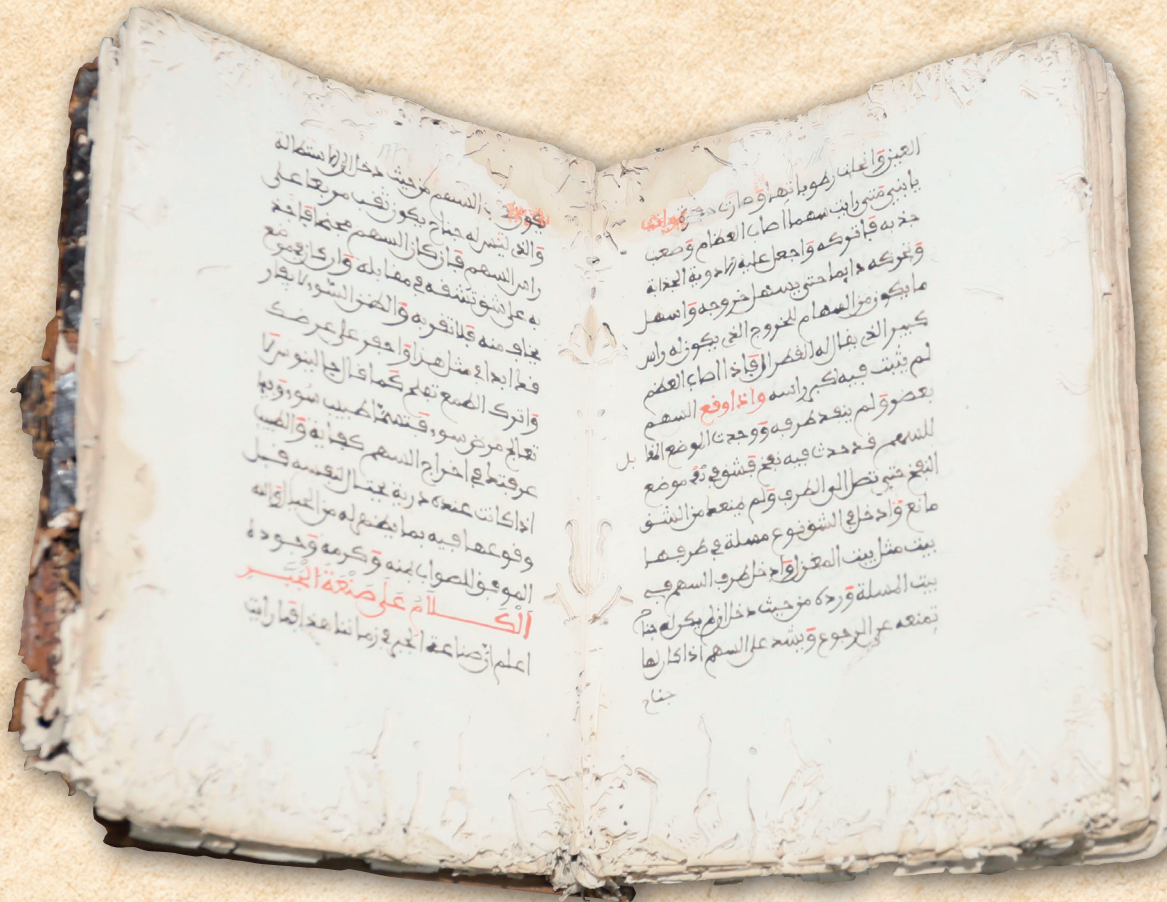 العين وانعلت رطوباتها وصارت
يا بني متى رايت سهما اصاب العظام وصعب
جذبه فاتركه واجعل عليه الادوية الجذابة
وتحركه دايما حتى يسهل خروجه واسهل
ما يكون من السهام للخروج الذي يكون له راس
كبير الذي يقال له القطرال فاذا اصاب العظم
لم يثبت فيه لكبر راسه واذا وقع السهم
بعضو ولم ينفد طرفه ووجدت الموضع
للسهم قد حدث فيه نفخ فشق في موضع
النفخ حتى تصل الى الطرف ولم يمنعك من الشق
مانع وادخل في الشق نوع مسلة في طرفها
بيت مثل بيت المغزل وادخل طرف السهم في
بيت المسلة ورده من حيث دخل ان لم يكن له جناح
تمنعه عن الرجوع ويشد على السهم اذا كان لها
جناح
يكون السهم من حيث دخل الى استطالة
والذي ليس له جناح يكون ثقب مربعا على
راس السهم فان كان السهم مجتمعا فاخذ
به على شق تشقه في مقابله وان كان في موضع
يخاف منه فلا تقربه والطعن السوء لا يقدر
فعل ابدا في مثل هذا واحفر على عرضك
واترك الطمع تفلح كما قال جالينوس لا
تعالج مرض سوء فتسمى طبيب سوء وبما
عرفتك في اخراج السهم كفاية والطبيب
اذا كانت عنده دربة يحتال لنفسه قبل
وقوعها فيه بما يصنع له من الحيل والله
الموفق للصواب بمنه وكرمه وجوده
الكلام على صنعة الجبر
اعلم ان صناعة الجبر في زماننا هذا فما رايت